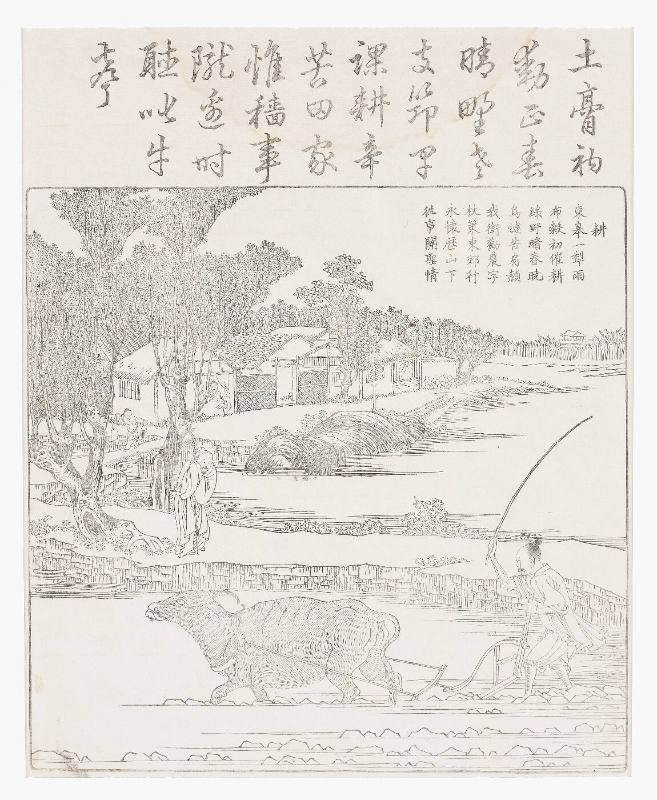 土膏初
動正春
晴野老
支筇早
課耕辛
苦田家
惟穡事
隴邊時
聽叱牛
聲
耕
東皐一犂雨
布穀初催耕
綠野暗春曉
烏犍苦肩赬
我銜勸農字
杖策東郊行
永懷歴山下
徃事關聖情